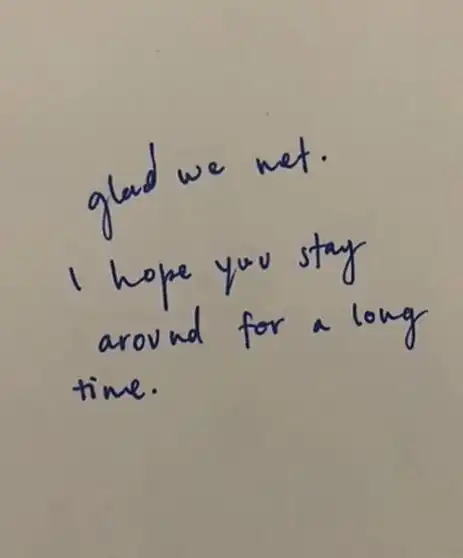 glad we met.
I hope you stay
around for a long
time.